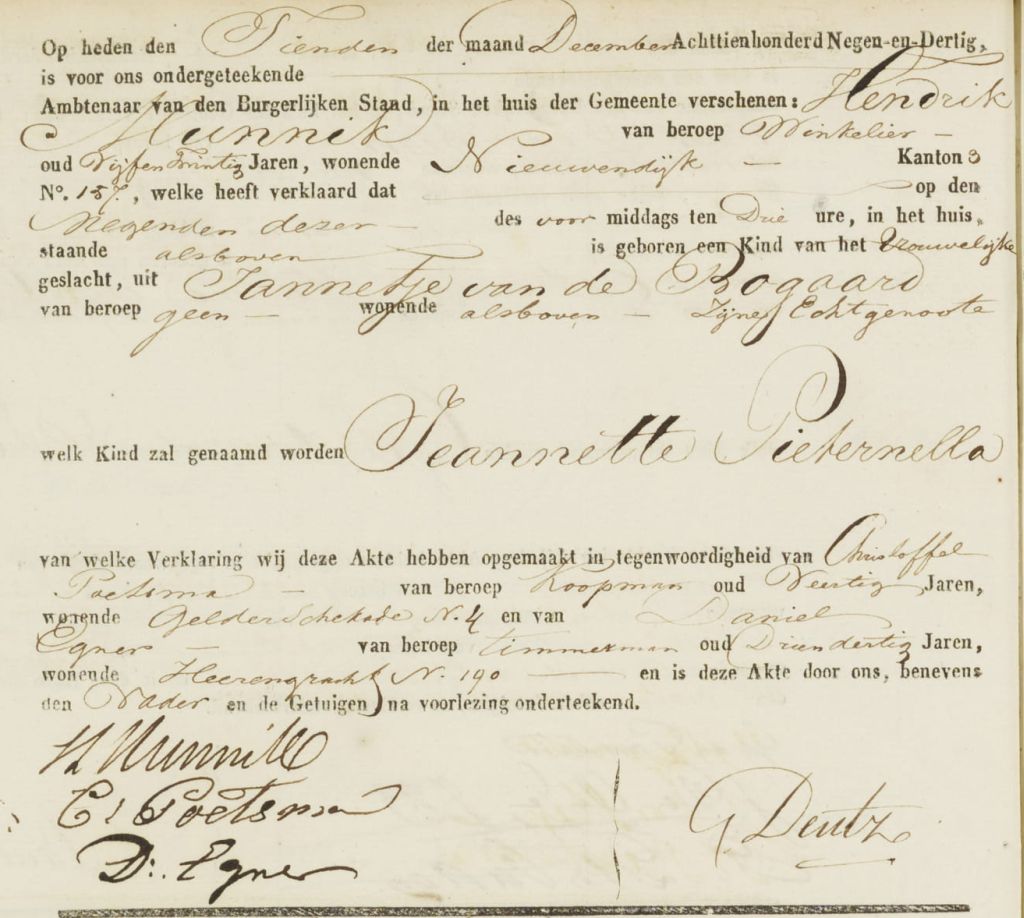 Op heden den Tienden der maand December Achttienhonderd Negen-en-Dertig,
is voor ons ondergeteekende
Ambtenaar van den Burgerlijken Stand, in het huis der Gemeente verschenen: Hendrik
Munnik van beroep Winkelier -
oud Vijf en Twintig Jaren, wonende Nieuwendijk - Kanton 3
No. 157, welke heeft verklaard dat op den
Negenden dezer des voor middags ten Drie ure, in het huis,
staande alsboven is geboren een Kind van het Vrouwelijke
geslacht, uit Jannetje van de Bogaard
van beroep geen - wonende alsboven - Zijne Echtgenoote
welk Kind zal genaamd worden Jeannette Pieternella
van welke Verklaring wij deze Akte hebben opgemaakt in tegenwoordigheid van Christoffel
Poetsma - van beroep Koopman oud Veertig Jaren,
wonende Gelderschekade N. 4 en van Daniel
Egner - van beroep timmerman oud Drieendertig Jaren,
wonende Heerengracht N. 190 - en is deze Akte door ons, benevens
den Vader en de Getuigen na voorlezing onderteekend.
H Munnik
C: Poetsma
G. Deutz
D: Egner